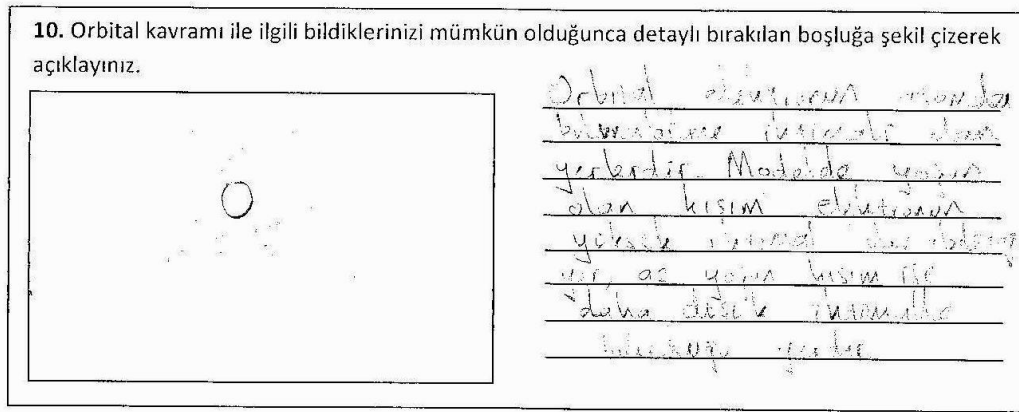 10. Orbital kavramı ile ilgili bildiklerinizi mümkün olduğunca detaylı bırakılan boşluğa şekil çizerek
açıklayınız.
Orbital elektronun atomda
bulunabilme ihtimali olan
yerlerdir. Modelde yoğun
olan kısım elektronun
yüksek ihtimal
yer, az yoğun kısım ise
daha düşük ihtimalle
bulunduğu yerdir